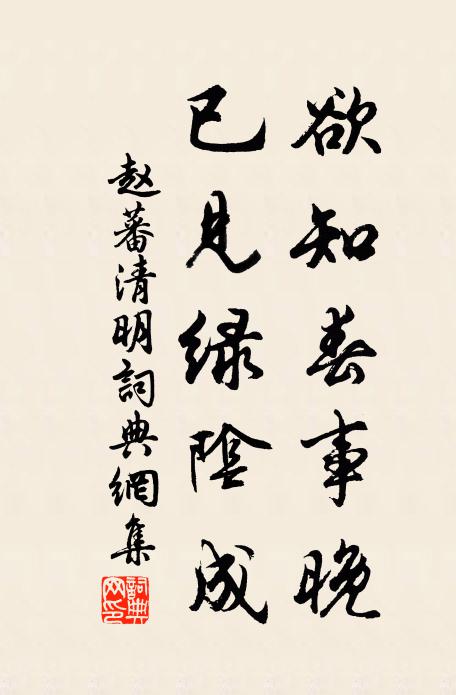 欲知春事晚
已見綠陰成
赵蕃清明詞典網集
詞典网印